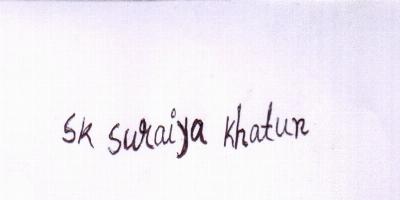 sk suraiya khatun